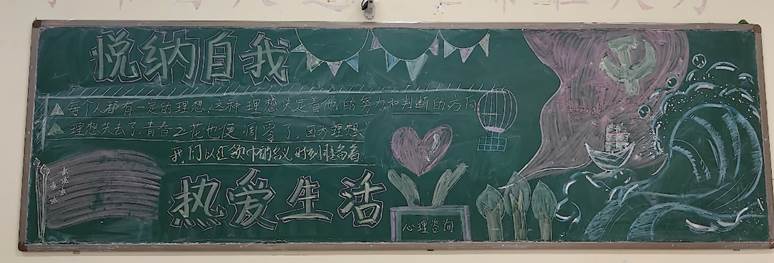 悦纳自我
每个人都有一定的理想,这种理想决定着他的努力和判断的方向
理想失去了,青春之花也便凋零了,因为理想
我们以
时刻准备着
热爱生活
心理咨询